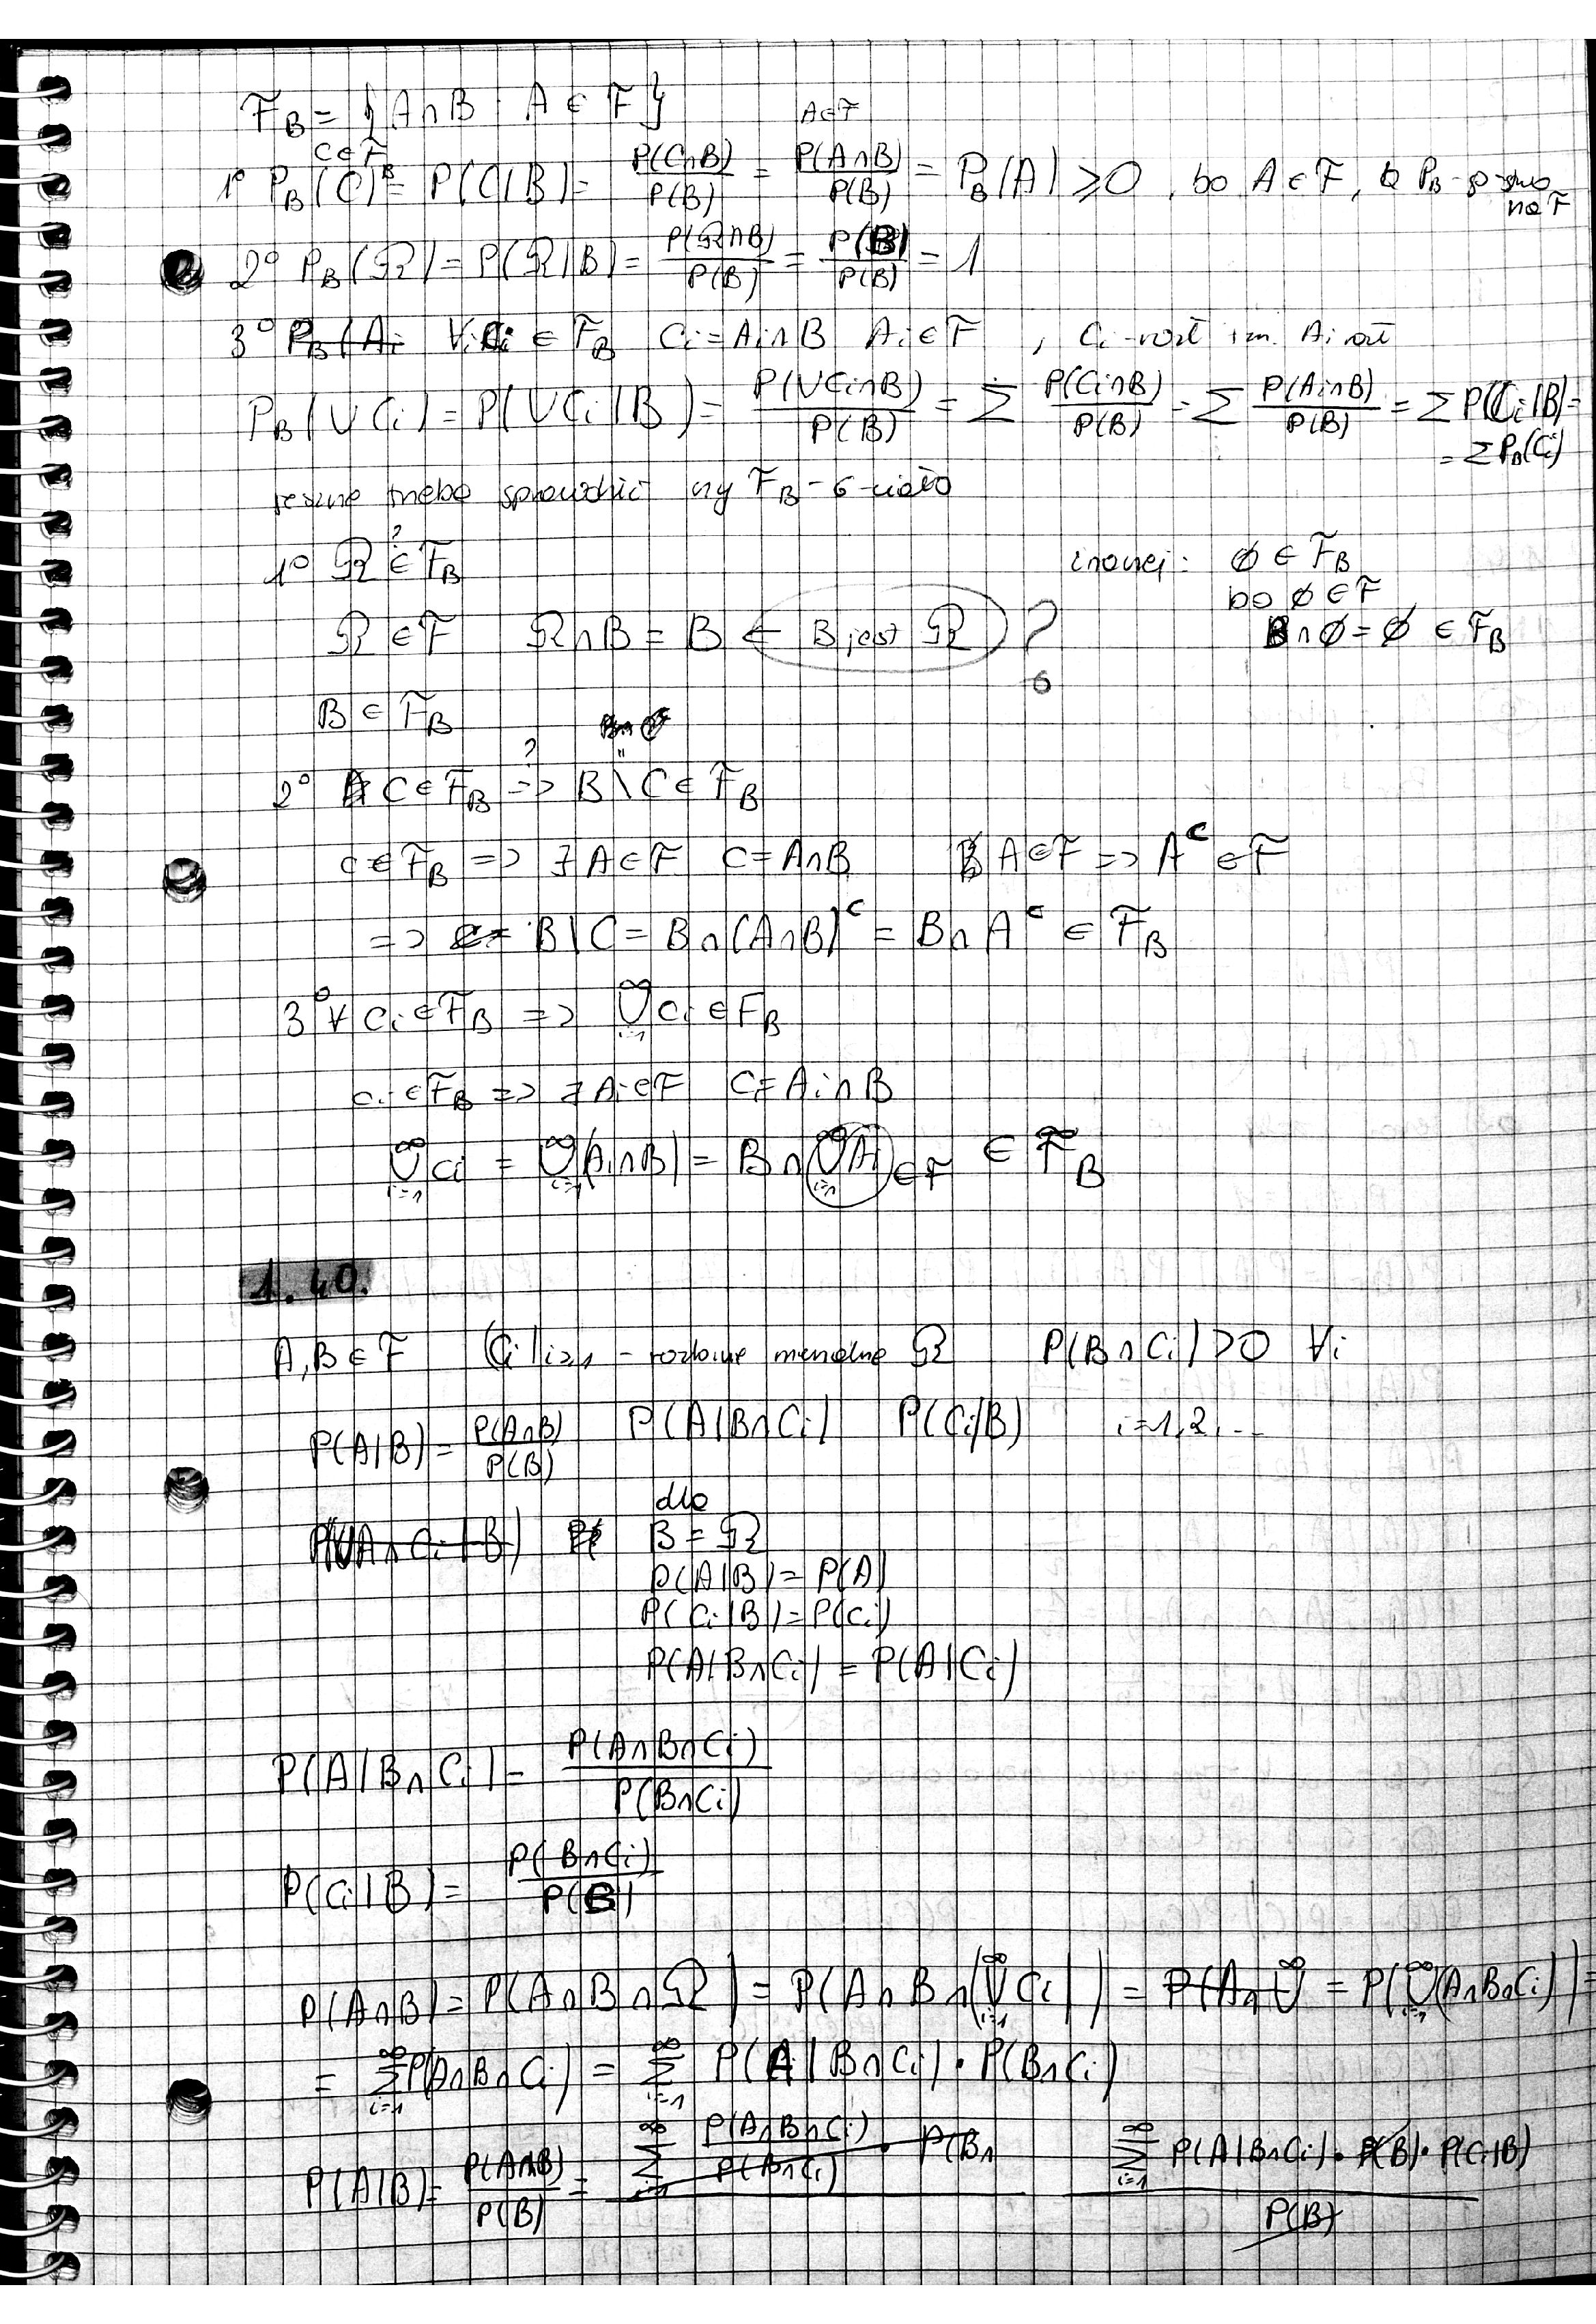 F_B = { A∩B : A ∈ F }
1° P_B(C) = P(C|B) = P(C∩B)/P(B) = P(A∩B)/P(B) = P_B(A) ≥ 0 , bo A ∈ F, a P_B - p-stwo na F
C∈F_B
A∈F
2° P_B(Ω) = P(Ω|B) = P(Ω∩B)/P(B) = P(B)/P(B) = 1
3° ∀i Ci ∈ F_B Ci = Ai∩B Ai ∈ F , Ci - rozł Ai rozł
P_B(∪Ci) = P(∪Ci|B) = P(∪Ci∩B)/P(B) = ∑ P(Ci∩B)/P(B) = ∑ P(Ai∩B)/P(B) = ∑ P(Ci|B) =
= ∑ P_B(Ci)
jeszcze trzeba sprawdzić czy F_B - σ-ciało
1° Ω ∈? F_B
inaczej: ∅ ∈ F_B
bo ∅ ∈ F
B∩∅ = ∅ ∈ F_B
Ω ∈ F Ω∩B = B ← B jest Ω ?
B ∈ F_B
2° C ∈ F_B ⇒? B \ C ∈ F_B
C ∈ F_B => ∃ A ∈ F C = A∩B A ∈ F => A^c ∈ F
=> B \ C = B∩(A∩B)^c = B∩A^c ∈ F_B
3° ∀ Ci ∈ F_B => ∪_{i=1}^∞ Ci ∈ F_B
Ci ∈ F_B => ∃ Ai ∈ F Ci = Ai∩B
∪_{i=1}^∞ Ci = ∪_{i=1}^∞ (Ai∩B) = B∩ ∪_{i=1}^∞ Ai ∈ F ∈ F_B
1.40.
A, B ∈ F (Ci)i≥1 - rozbicie Ω P(B∩Ci) > 0 ∀i
P(A|B) = P(A∩B)/P(B) P(A|B∩Ci) P(Ci|B) i=1,2,...
dla
B = Ω
P(A|B) = P(A)
P(Ci|B) = P(Ci)
P(A|B∩Ci) = P(A|Ci)
P(A|B∩Ci) = P(A∩B∩Ci)/P(B∩Ci)
P(Ci|B) = P(B∩Ci)/P(B)
P(A∩B) = P(A∩B∩Ω) = P(A∩B∩(∪_{i=1}^∞ Ci)) = P(A∩∪^∞ = P(∪_{i=1}^∞ (A∩B∩Ci)) =
= ∑_{i=1}^∞ P(A∩B∩Ci) = ∑_{i=1}^∞ P(A|B∩Ci) · P(B∩Ci)
P(A|B) = P(A∩B)/P(B) = ∑_{i=1}^∞ P(A∩B∩Ci)/P(B∩Ci) · P(B∩ ∑_{i=1}^∞ P(A|B∩Ci) · P(B) · P(Ci|B) / P(B)